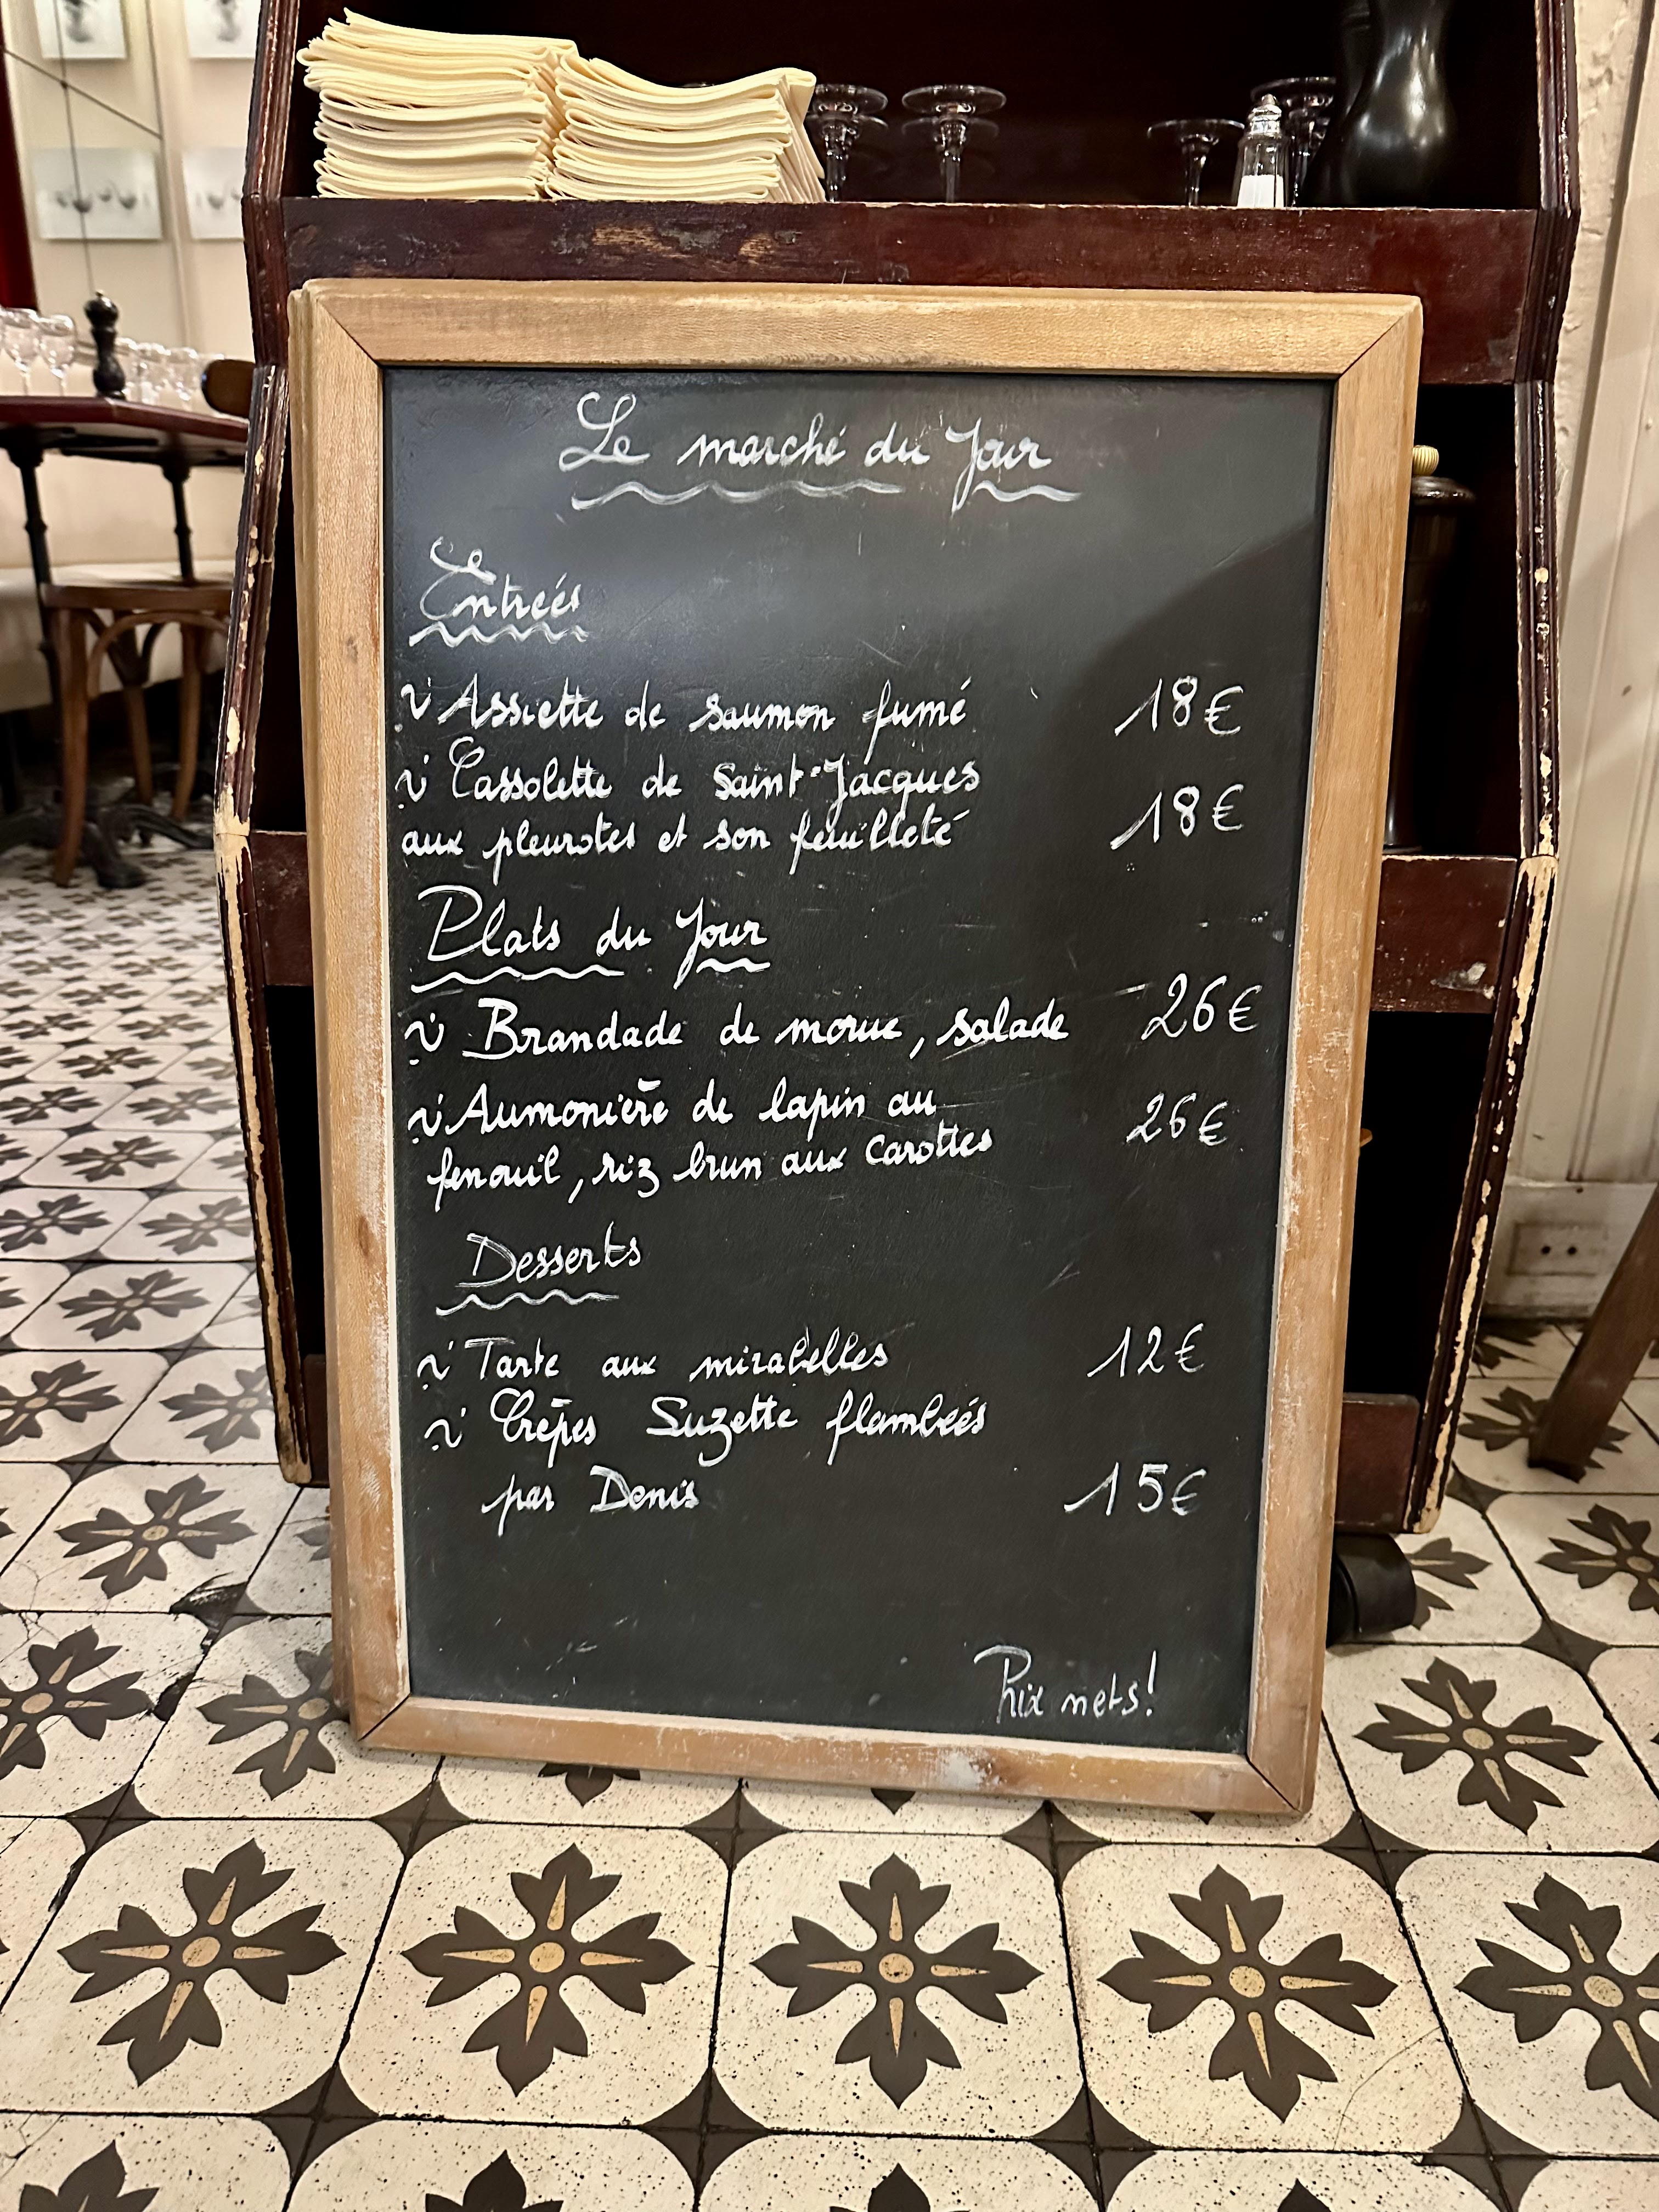 Le marché du Jour
Entrées
Assiette de saumon fumé 18€
Cassolette de Saint-Jacques
aux pleurotes et son feuilleté 18€
Plats du Jour
Brandade de morue, salade 26€
Aumonière de lapin au
fenouil, riz brun aux carottes 26€
Desserts
Tarte aux mirabelles 12€
Crêpes Suzette flambées
par Denis 15€
Prix nets!